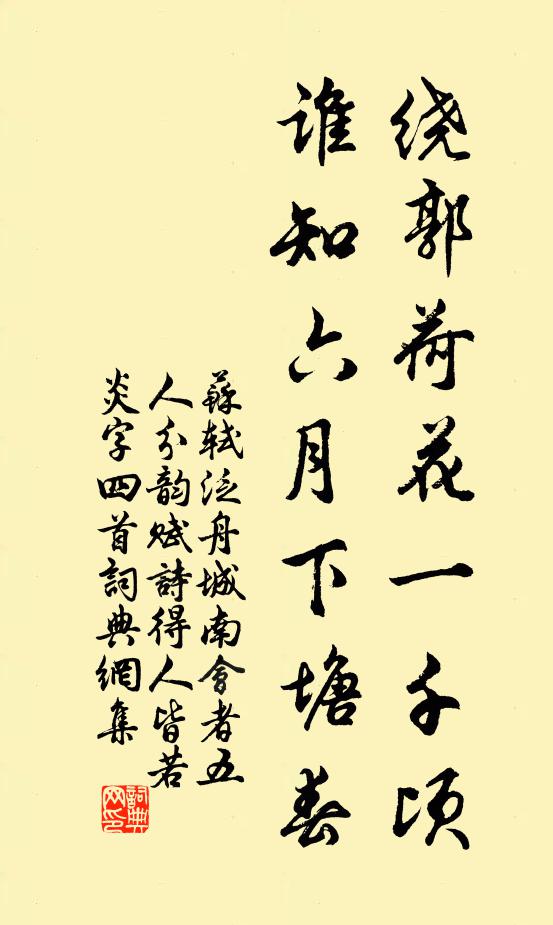 绕郭荷花一千顷
谁知六月下塘春
蘇轼泛舟城南會者五
人分韵赋詩得人皆若
炎字四首詞典網集
詞典
网印